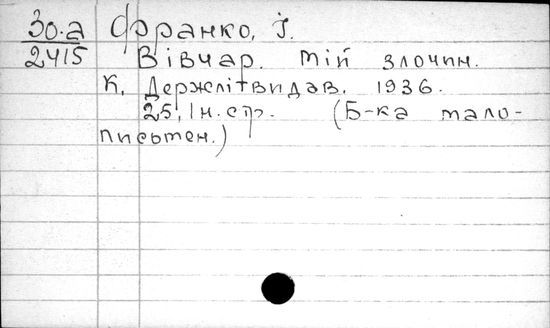 30.а Франко, І.
2415 Вівчар. Мій злочин.
К. Держлітвидав. 1936.
25, 1 н. стр. (Б-ка мало-
письмен.)